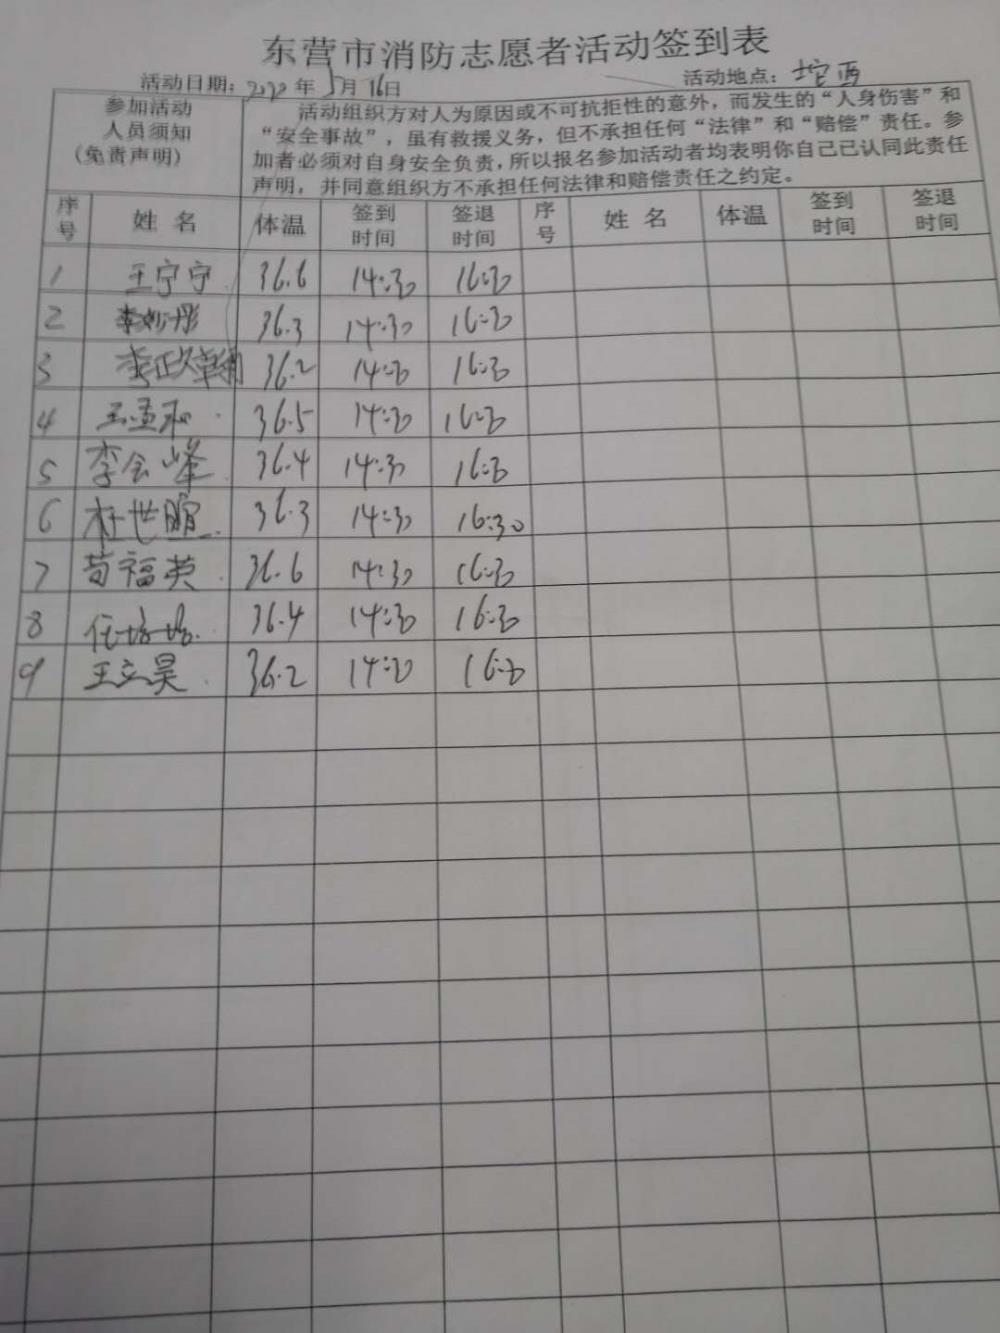 东营市消防志愿者活动签到表
活动日期：2020年5月16日 活动地点：坨西
参加活动
人员须知
（免责声明）
活动组织方对人为原因或不可抗拒性的意外，而发生的“人身伤害”和
“安全事故”，虽有救援义务，但不承担任何“法律”和“赔偿”责任。参
加者必须对自身安全负责，所以报名参加活动者均表明你自己已认同此责任
声明，并同意组织方不承担任何法律和赔偿责任之约定。
序号 姓名 体温 签到时间 签退时间 序号 姓名 体温 签到时间 签退时间
1 王宁宁 36.6 14:30 16:30
2 李 36.3 14:30 16:30
3 李 36.2 14:30 16:30
4 王孟和 36.5 14:30 16:30
5 李会峰 36.4 14:30 16:30
6 杜世 36.3 14:30 16:30
7 苟福英 36.6 14:30 16:30
8 任培培 36.4 14:30 16:30
9 王立昊 36.2 14:30 16:30